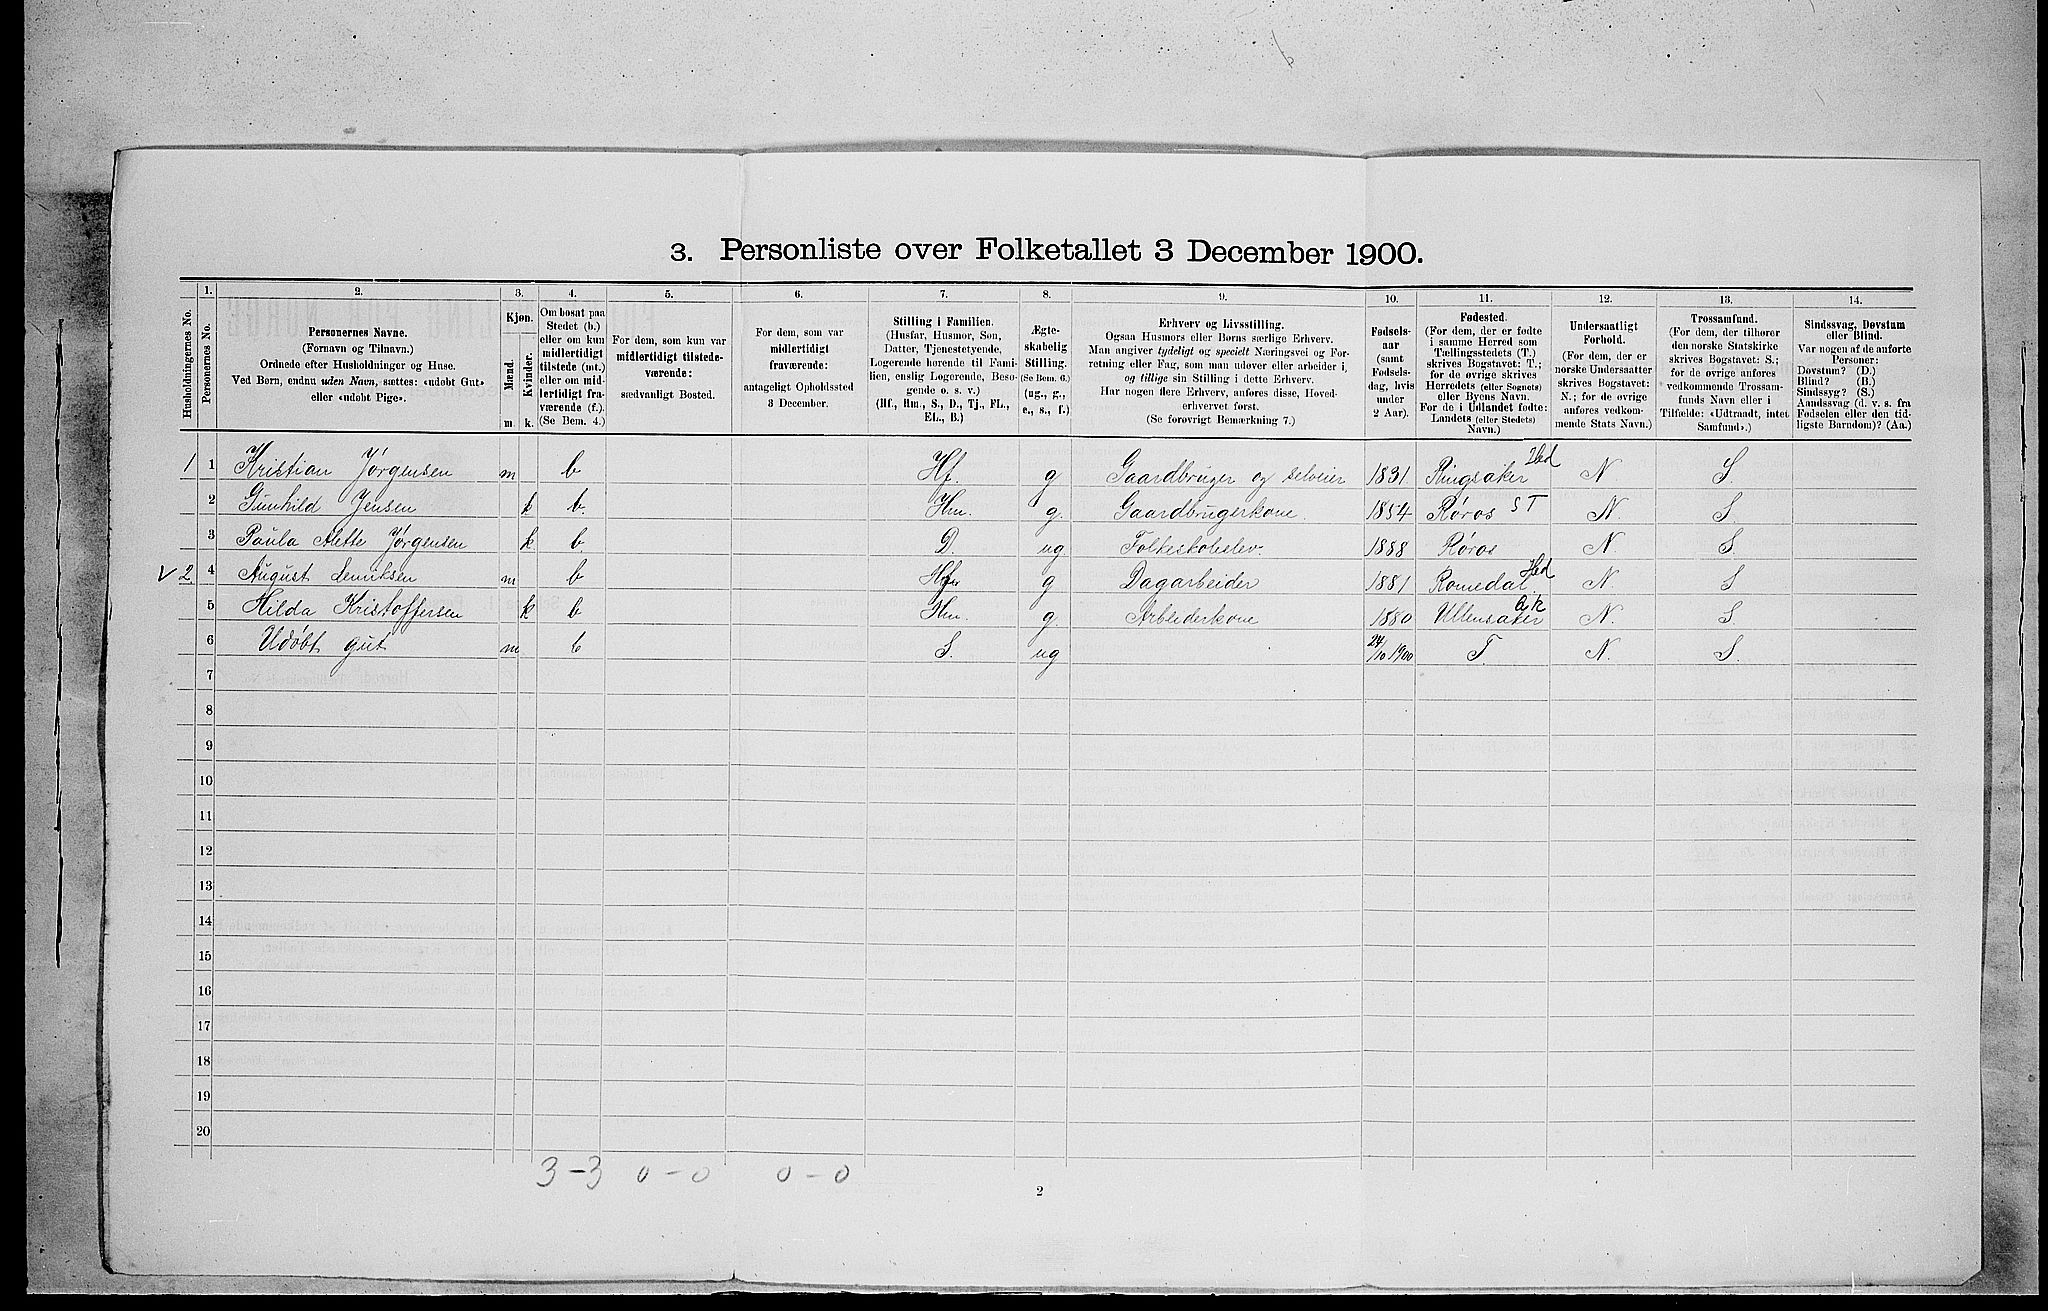 3. Personliste over Folketallet 3 December 1900.
Husholdningernes No.
1.
Personernes No.
2.
Personernes Navne.
(Fornavn og Tilnavn.)
Ordnede efter Husholdninger og Huse.
Ved Børn, endnu uden Navn, sættes: «udøbt Gut»
eller «udøbt Pige».
3.
Kjøn.
Mænd.
Kvinder.
m. k.
4.
Om bosat paa
Stedet (b.)
eller om kun
midlertidigt
tilstede (mt.)
eller om mid-
lertidigt fra-
værende (f.).
(Se Bem. 4.)
5.
For dem, som kun var
midlertidigt tilstede-
værende:
sædvanligt Bosted.
6.
For dem, som var
midlertidigt
fraværende:
antageligt Opholdssted
3 December.
7.
Stilling i Familien.
(Husfar, Husmor, Søn,
Datter, Tjenestetyende,
Logerende hørende til Fami-
lien, enslig Logerende, Besø-
gende o. s. v.)
(Hf., Hm., S., D., Tj., FL.,
El., B.)
8.
Ægte-
skabelig
Stilling.
(Se Bem. 6.)
(ug., g.,
e., s., f.)
9.
Erhverv og Livsstilling.
Ogsaa Husmors eller Børns særlige Erhverv.
Man angiver tydeligt og specielt Næringsvei og For-
retning eller Fag, som man udøver eller arbeider i,
og tillige sin Stilling i dette Erhverv.
Har nogen flere Erhverv, anføres disse, Hoved-
erhvervet først.
(Se forøvrigt Bemærkning 7.)
10.
Fødsels-
aar
(samt
Fødsels-
dag, hvis
under
2 Aar).
11.
Fødested.
(For dem, der er fødte
i samme Herred som
Tællingsstedets (T.)
skrives Bogstavet: T.;
for de øvrige skrives
Herredets (eller Sognets)
eller Byens Navn.
For de i Udlandet fødte:
Landets (eller Stedets)
Navn.)
12.
Undersaatligt
Forhold.
(For dem, der er
norske Undersaatter
skrives Bogstavet:
N.; for de øvrige
anføres vedkom-
mende Stats Navn.)
13.
Trossamfund.
(For dem, der tilhører
den norske Statskirke
skrives Bogstavet: S.;
for de øvrige anføres
vedkommende Trossam-
funds Navn eller i
Tilfælde: «Udtraadt, intet
Samfund».)
14.
Sindssvag, Døvstum
eller Blind.
Var nogen af de anførte
Personer:
Døvstum? (D.)
Blind? (B.)
Sindssyg? (S.)
Aandssvag (d. v. s. fra
Fødselen eller den tid-
ligste Barndom)? (Aa.)
1 1 Kristian Jørgensen m b Hf. g Gaardbruger og selveier 1831 Ringsaker Hed N S
2 Gunhild Jensen k b. Hm. g. Gaardbrugerkone 1854 Røros ST N. S.
3 Paula Alette Jørgensen k b. D. ug Folkeskolelev. 1888 Røros N. S.
v 2. 4 August Lenriksen m b Hf g Dagarbeider 1881 Romedal Hed N. S.
5 Hilda Kristoffersen k b Hm. g. Arbeiderkone 1880 Ullensaker Ak N. S
6 Udøbt gut m b S. ug 24/10 1900 T. N. S.
7
8
9
10
11
12
13
14
15
16
17
18
19
20
3-3 0-0 0-0
2